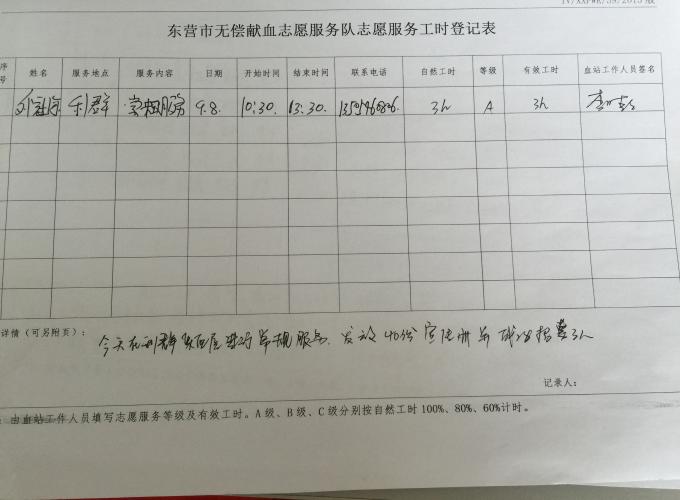 东营市无偿献血志愿服务队志愿服务工时登记表
序号 姓名 服务地点 服务内容 日期 开始时间 结束时间 联系电话 自然工时 等级 有效工时 血站工作人员签名
利群 常规服务 9.8. 10:30. 13:30. 3h A 3h
详情（可另附页）： 今天在利群 进行常规服务. 发放40份宣传册 成功招募3人
记录人：
由血站工作人员填写志愿服务等级及有效工时。A级、B级、C级分别按自然工时100%、80%、60%计时。